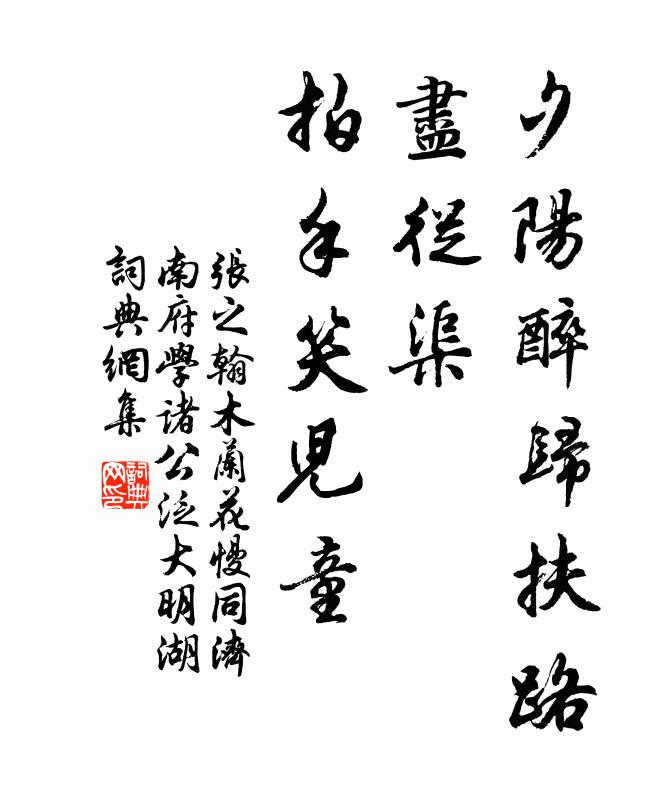 夕陽醉歸扶路
盡從渠
拍手笑兒童
張之翰木蘭花慢同濟
南府學諸公泛大明湖
詞典網集
詞典
网印